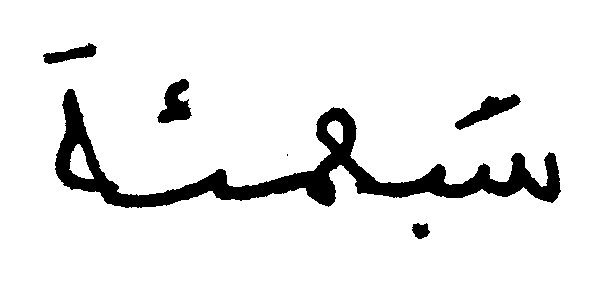 سَبعمئة